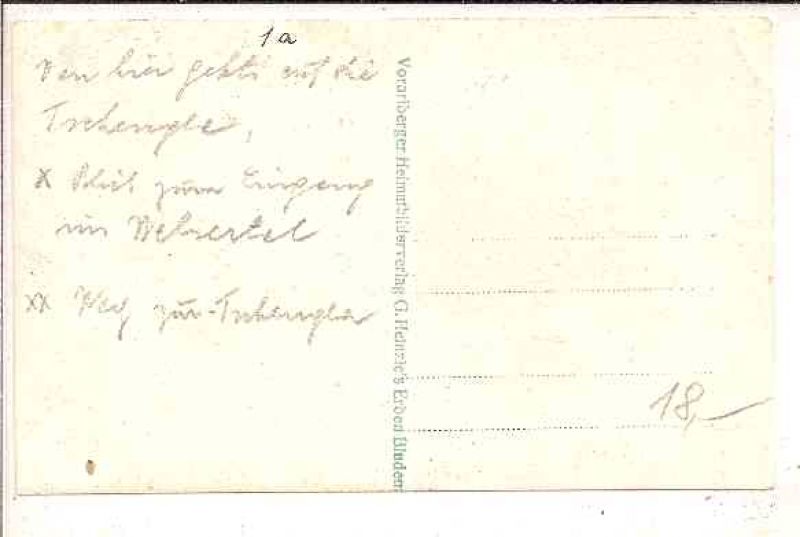 1a
Von hier gehts auf die
Tschengla,
x Blick zum Eingang
ins
xx Weg zur Tschengla
Vorarlberger Heimatbilderverlag G. Heinzle's Erben Bludenz
18,-